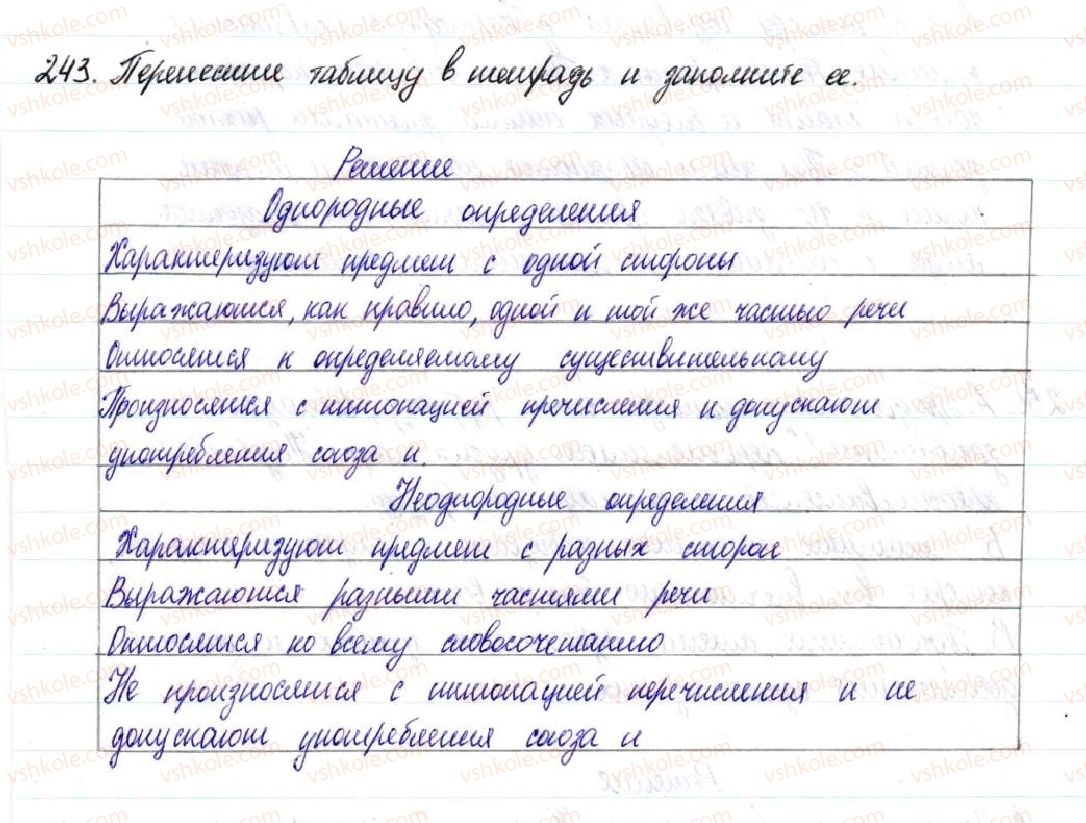 243. Перенесите таблицу в тетрадь и заполните ее.
Решение
Однородные определения
Характеризуют предмет с одной стороны
Выражаются, как правило, одной и той же частью речи
Относятся к определяемому существительному
Произносятся с интонацией пречисления и допускают
употребления союза и.
Неоднородные определения
Характеризуют предмет с разных сторон
Выражаются разными частями речи
Относятся ко всему словосочетанию
Не произносятся с интонацией перечисления и не
допускают употребления союза и